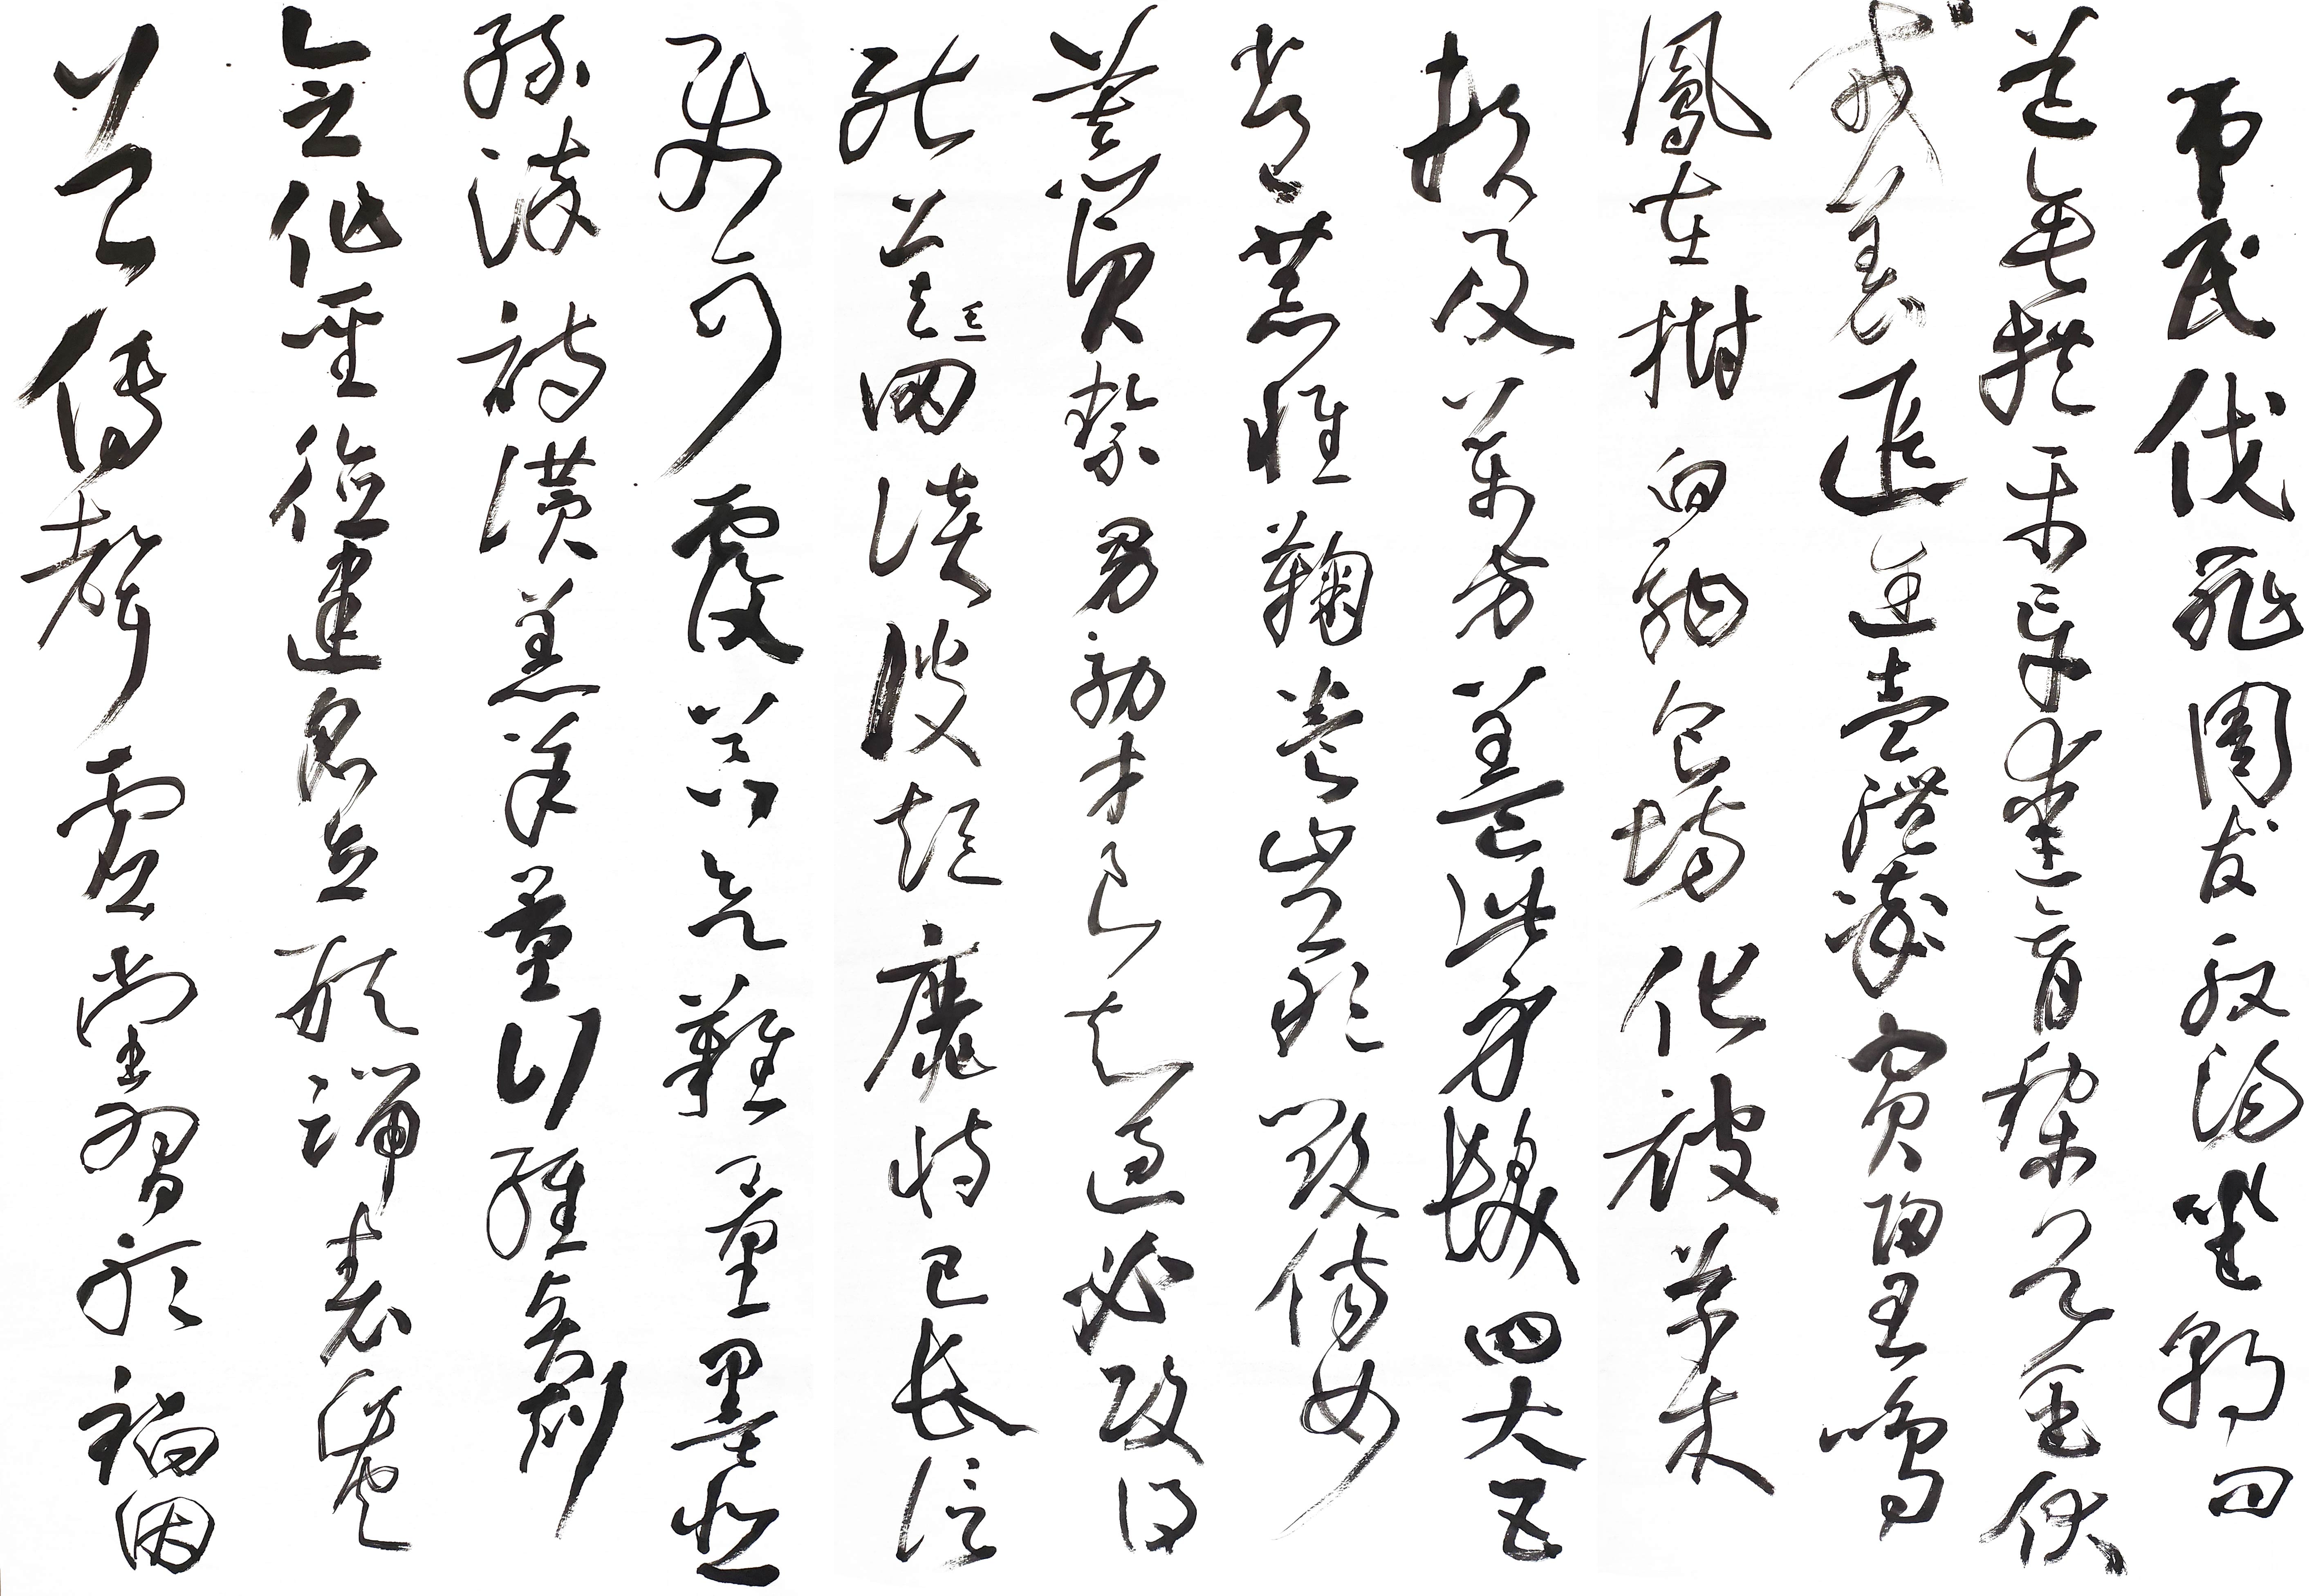 吊民伐罪周發殷湯坐朝問
道垂拱平章愛育黎首臣伏
戎羌遐邇壹體率賓歸王鳴
鳳在樹白駒食場化被草木
賴及萬方蓋此身髮四大五
常恭惟鞠養豈敢毀傷女
慕貞絜男效才良知過必改得
能莫忘罔談彼短靡恃己長信
使可覆器欲難量墨悲
絲染詩讚羔羊景行維賢剋
念作聖德建名立形端表正空
谷傳聲虛堂習聽禍因